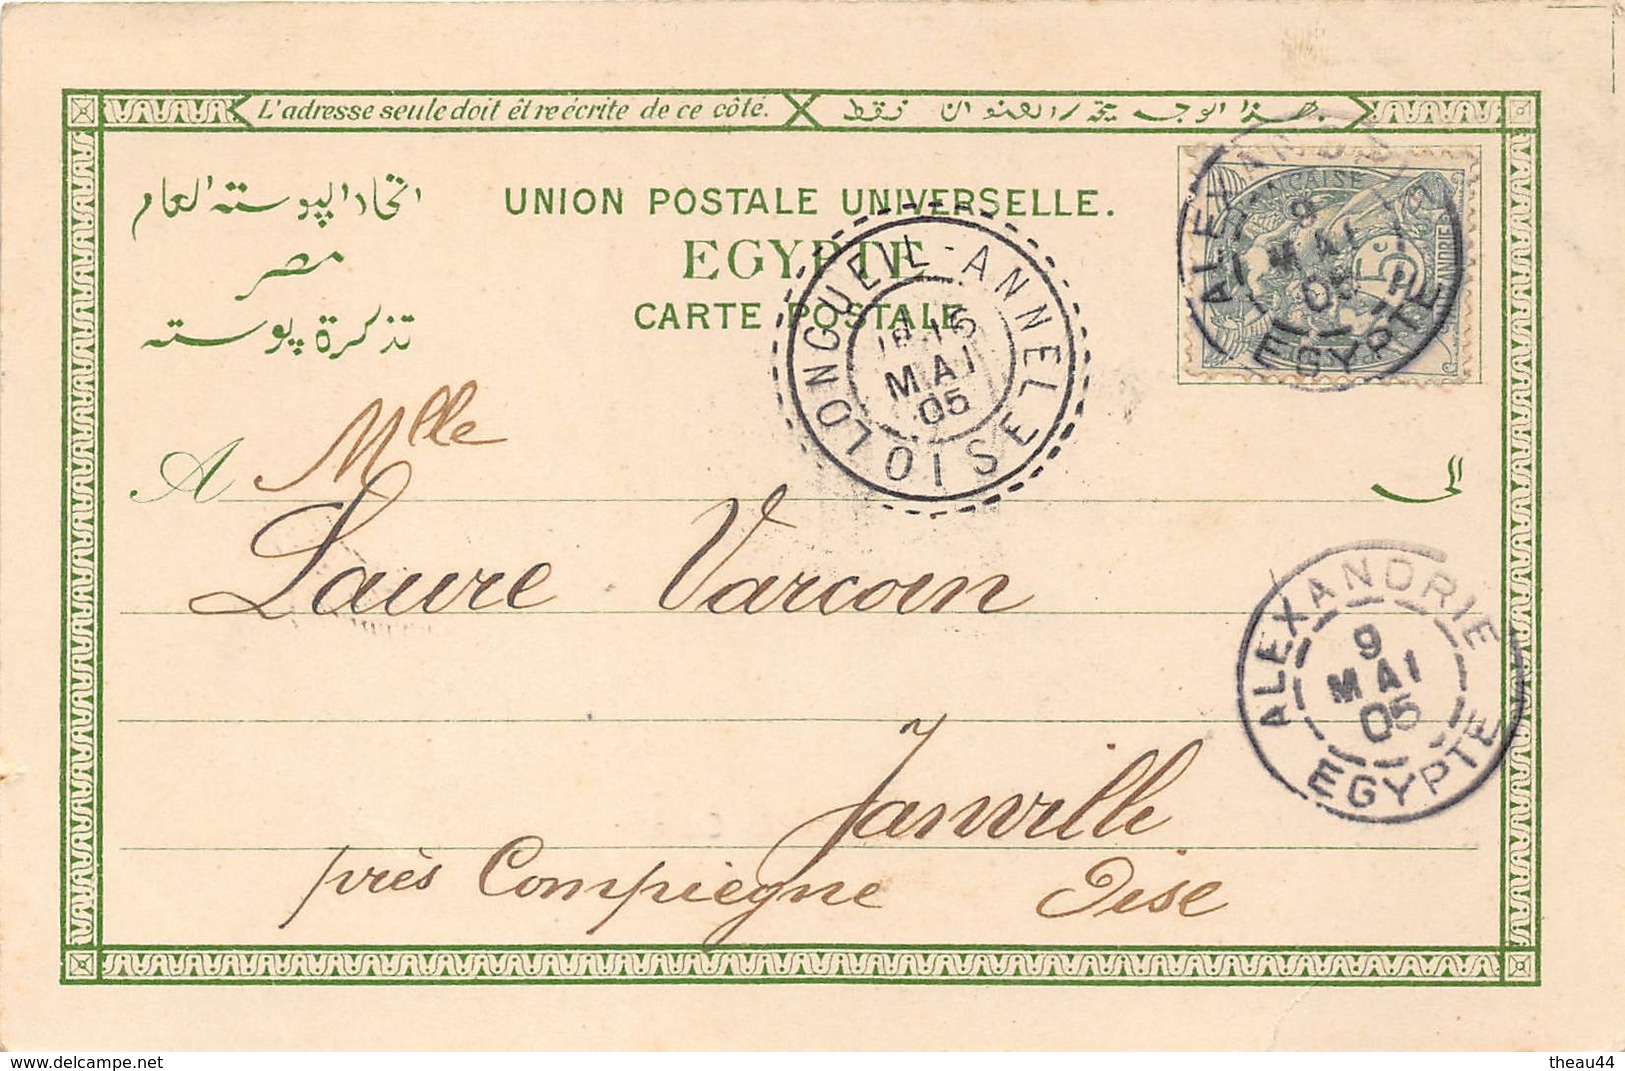 L'adresse seule doit être écrite de ce côté.
هذا الوجه يحرر العنوان فقط
اتحاد البوسته العام
UNION POSTALE UNIVERSELLE.
مصر
EGYPTE
تذكرة پوسته
CARTE POSTALE
ALEXANDRIE
9
MAI
05
EGYPTE
5c
LONGUEIL-ANNEL
15
MAI
05
OISE
A Mlle
الى
Laure Varcoin
ALEXANDRIE
9
MAI
05
EGYPTE
Janville
près Compiegne Oise
www.delcampe.net
theau44